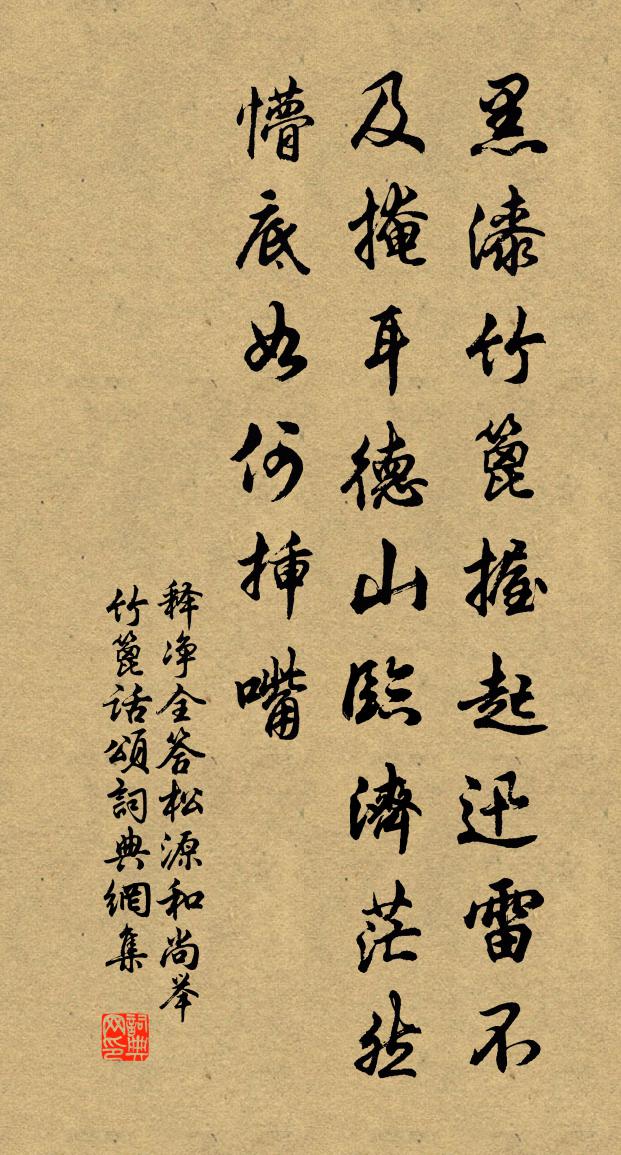 黑漆竹篦握起迅雷不
及掩耳德山臨濟茫然
懵底如何挿嘴
释净全答松源和尚举
竹篦话頌詞典網集
詞典
网印